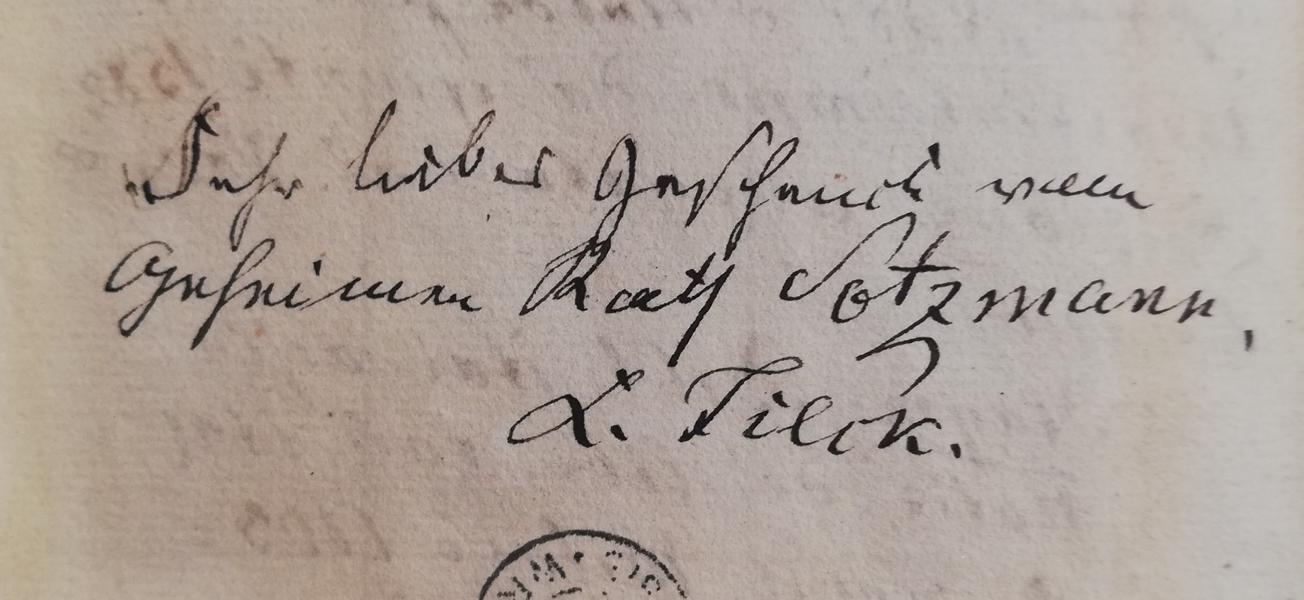 Sehr liebes Geschenck vom
Geheimen Rath Sotzmann,
L. Tieck.